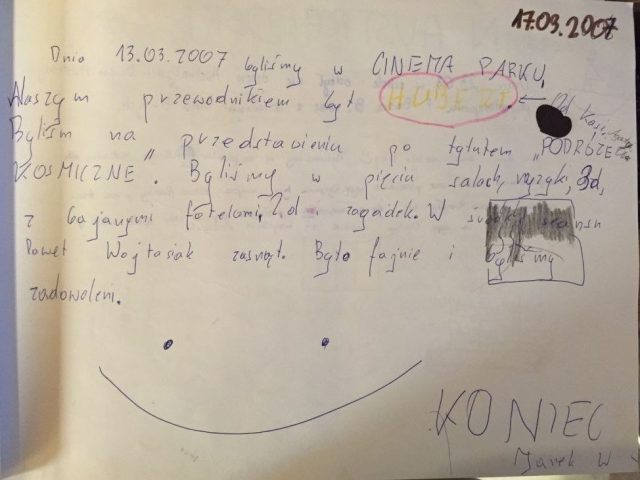 17.03.2007
Dnia 13.03.2007 byliśmy w CINEMA PARKU,
Naszym przewodnikiem był HUBERT. ← Od Kasi
Byliśm na przedstawieniu po tytułem „PODRÓŻE
KOSMICZNE". Byliśmy w pięciu salach, muzyki, 3d,
z bajanymi fotelami, 2,d i zagadek. W
Paweł Wojtasiak zasnął. Było fajnie i byliśmy
zadowoleni.
KONIEC
Jarek W